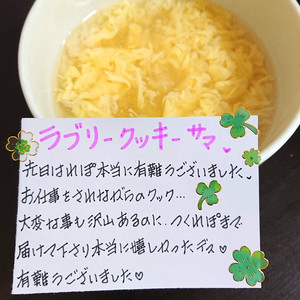 ラブリークッキーサマ♥
先日はれぽ本当に有難うございました♥
お仕事をされながらのクック…
大変な事も沢山あるのに、つくれぽまで
届けて下さり本当に嬉しかったデス♥
有難うございました♡